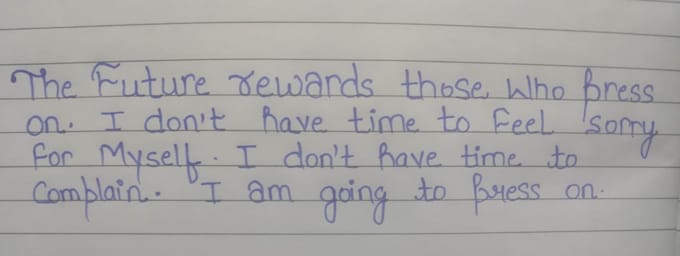 The Future rewards those Who press
on. I don't have time to Feel sorry
For Myself. I don't have time to
Complain. I am going to press on.